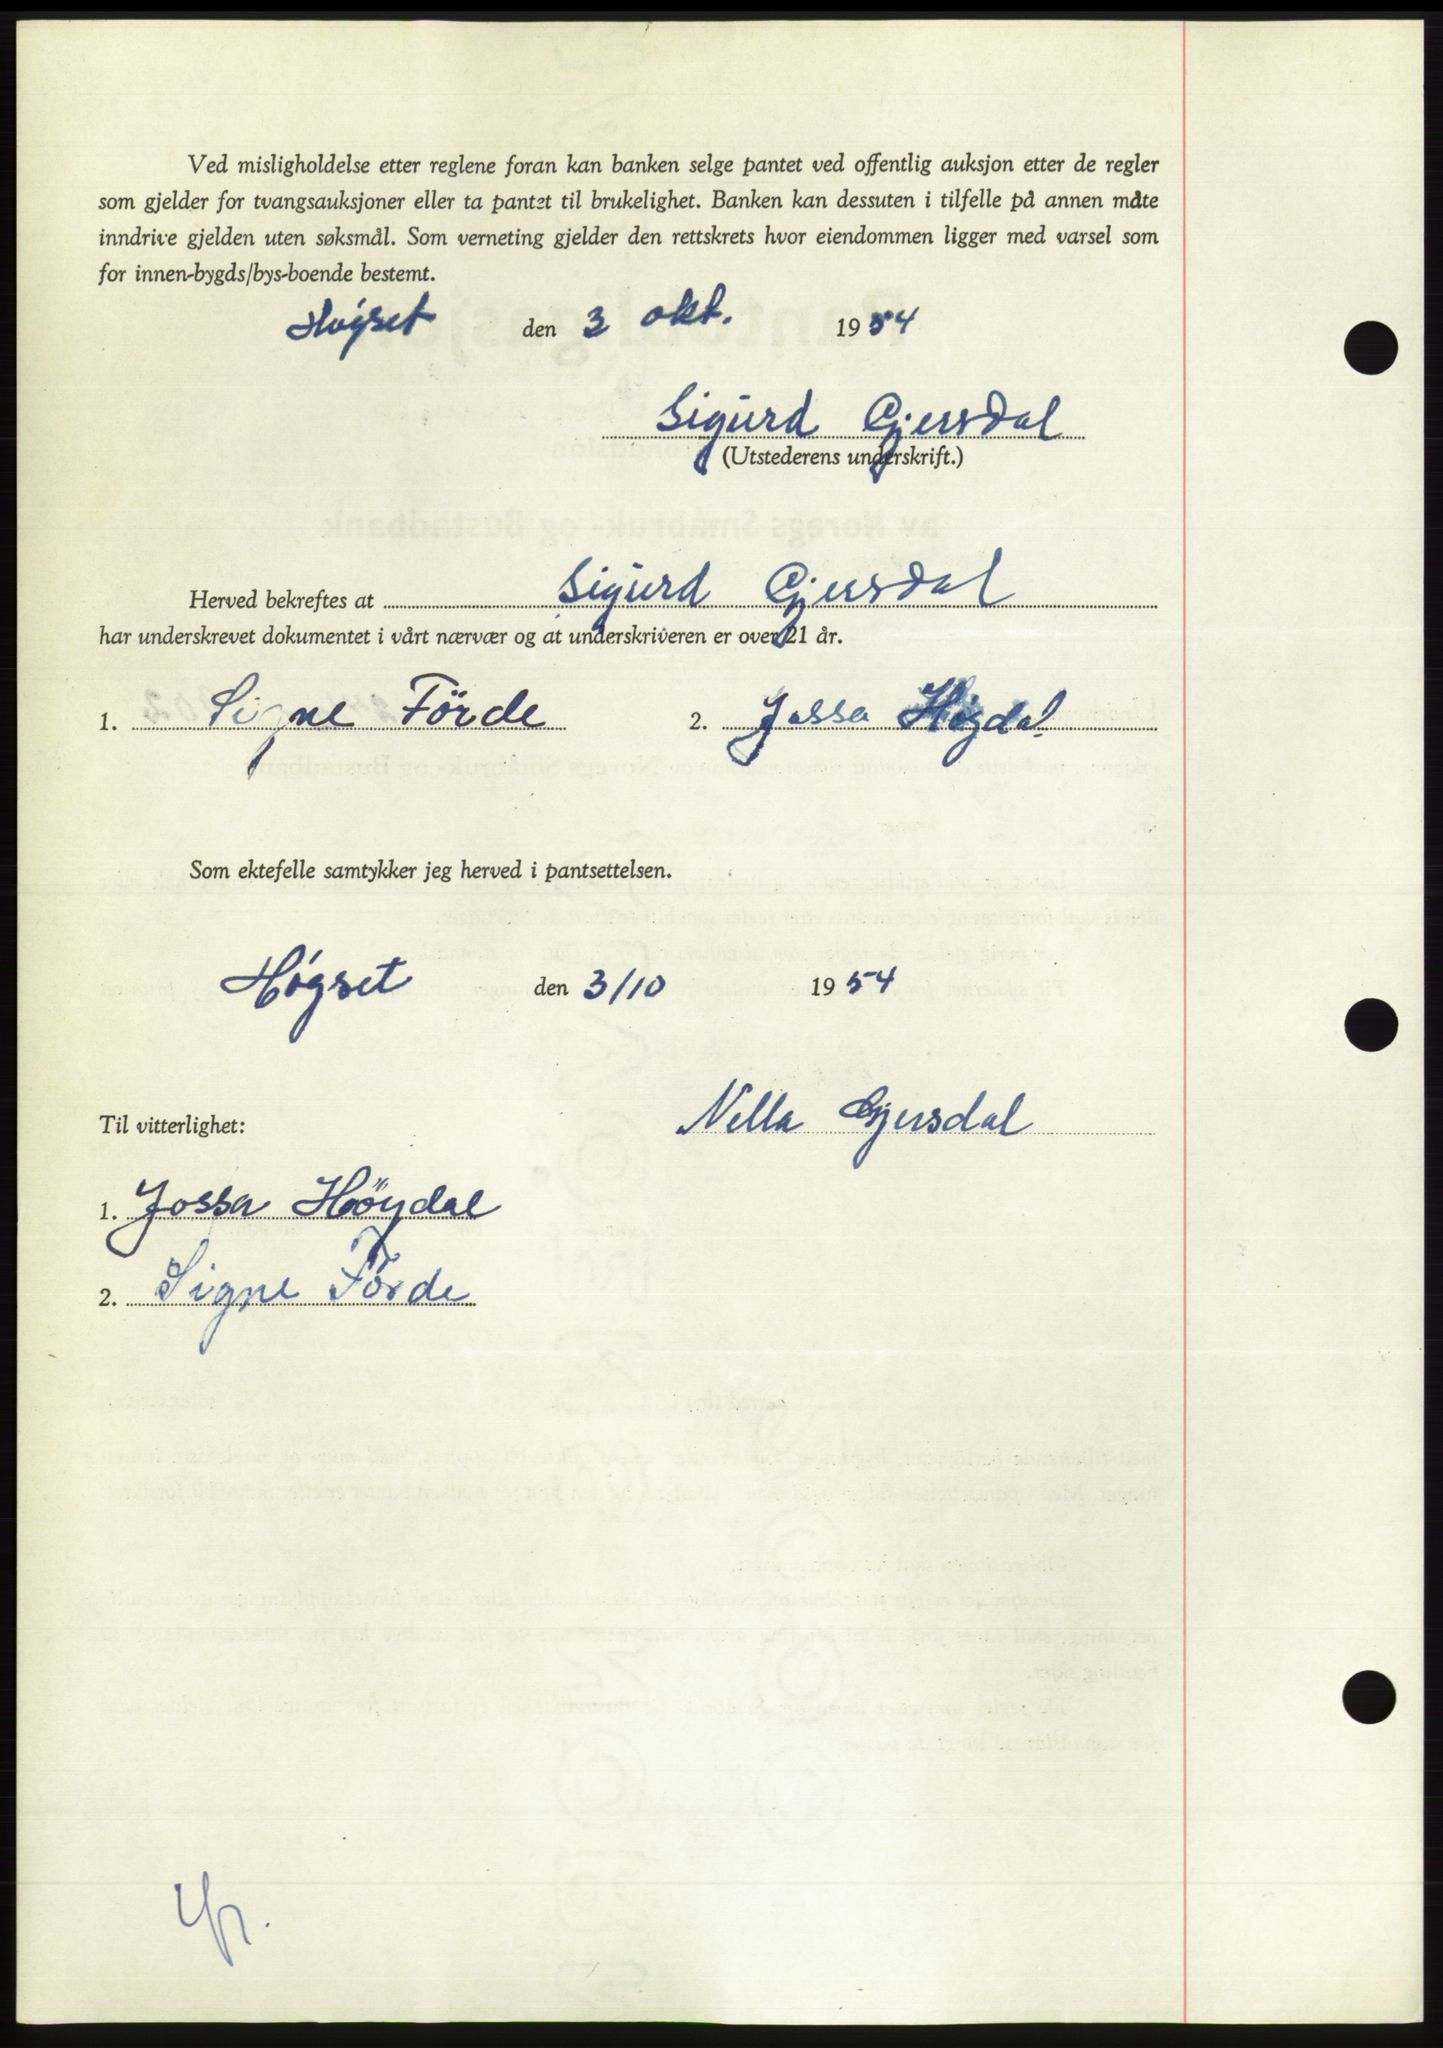 Ved misligholdelse etter reglene foran kan banken selge pantet ved offentlig auksjon etter de regler
som gjelder for tvangsauksjoner eller ta pantet til brukelighet. Banken kan dessuten i tilfelle på annen måte
inndrive gjelden uten søksmål. Som verneting gjelder den rettskrets hvor eiendommen ligger med varsel som
for innen-bygds/bys-boende bestemt.
Høgset den 3 okt. 1954
Sigurd Gjersdal
(Utstederens underskrift.)
Herved bekreftes at Sigurd Gjersdal
har underskrevet dokumentet i vårt nærvær og at underskriveren er over 21 år.
1. Signe Förde 2. Jossa Høgdal
Som ektefelle samtykker jeg herved i pantsettelsen.
Høgset den 3/10 1954
Nella Gjersdal
Til vitterlighet:
1. Jossa Höydal
2. Signe Förde